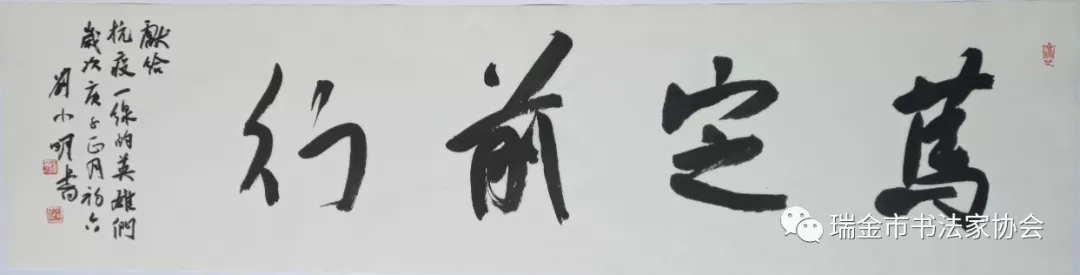 篤定前行
獻給
抗疫一線的英雄們
歲次庚子正月初六
劉小明書
瑞金市书法家协会